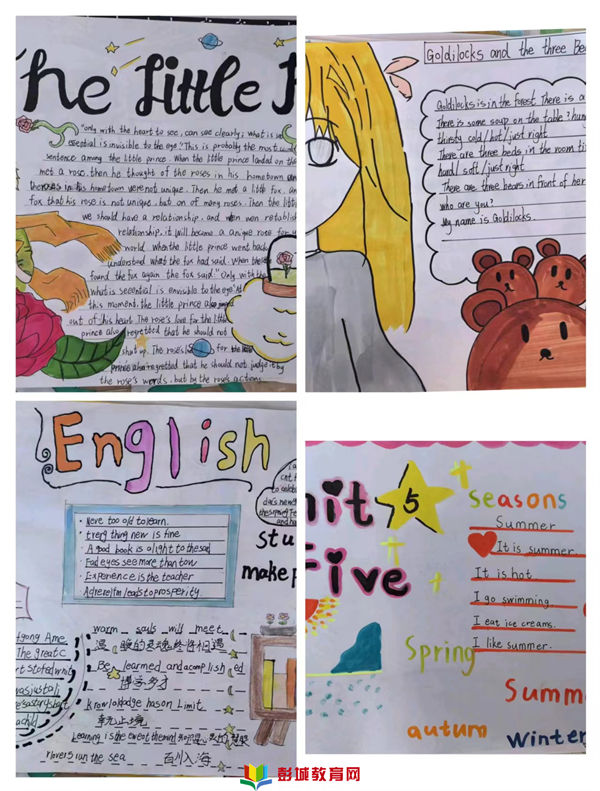 The Little
"only with the heart to see, can see clearly; what is
essential is invisible to the eye." This is probably the most
sentence among the little prince. When the little prince landed on the
met a rose. then he thought of the roses in his hometown
in his hometown were not unique. Then he met a little fox,
fox that his rose is not unique. but on of many roses. Then the
we should have a relationship. and when won retablish
relationship, it will become a unique rose for
world. When the little prince went back
understand what the fox had said. When the
found the fox again the fox said: "Only with the
what is seeential is envisible to the eye." At
this moment, the little prince also
out of his heart. The rose's love for the little
prince also regretted that he should not
shut up. The rose's for the
prince also regretted that he should not judge it by
the rose's words, but by the rose's actions
Goldilocks and the three Be
Goldilocks is in the forest. There is a
There is some soup on the table? hung
thirsty cold / hot / just right
There are three beds in the room ti
hard / soft / just right
There are three bears in front of her
who are you?
My name is Goldilocks.
English
Never too old to learn.
thing new is fine
A good book is a light to the soul
eyes see more than tow
Experience is the teacher
leads to prosperity.
stu
make p
warm souls will meet
温暖的灵魂终将相遇
Be learned and acomplished
博学多才
knowlodge has on Limit
学无止境
Learning is the
rlovers run the sea 百川入海
The great C
nit 5
Five
seasons
Summer
It is summer.
It is hot.
I go swimming.
I eat ice creams.
I like summer.
Spring
Summ
autumn
Winter
彭城教育网